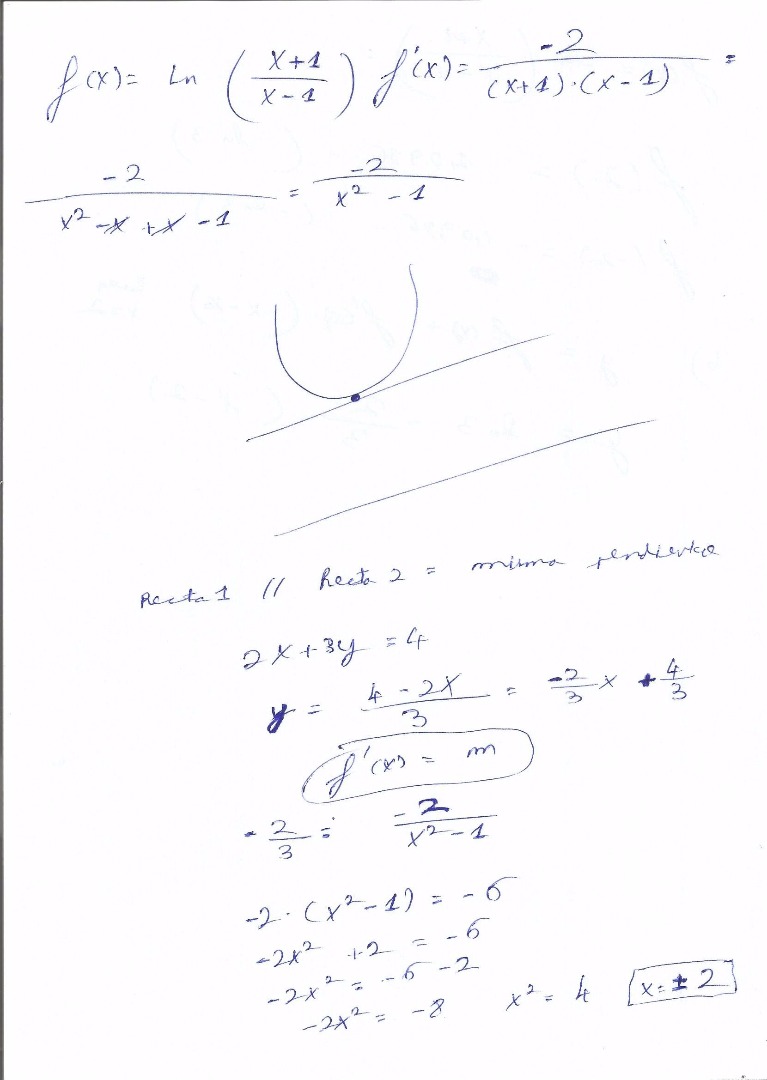 f(x) = Ln ( (x+1)/(x-1) ) f'(x) = -2/((x+1)·(x-1)) =
-2/(x² -x +x -1) = -2/(x² -1)
Recta 1 // Recta 2 = misma pendiente
2x+3y = 4
y = (4-2x)/3 = -2/3 x + 4/3
f'(x) = m
-2/3 = -2/(x²-1)
-2·(x²-1) = -6
-2x² +2 = -6
-2x² = -6 -2
-2x² = -8 x² = 4 x = ±2